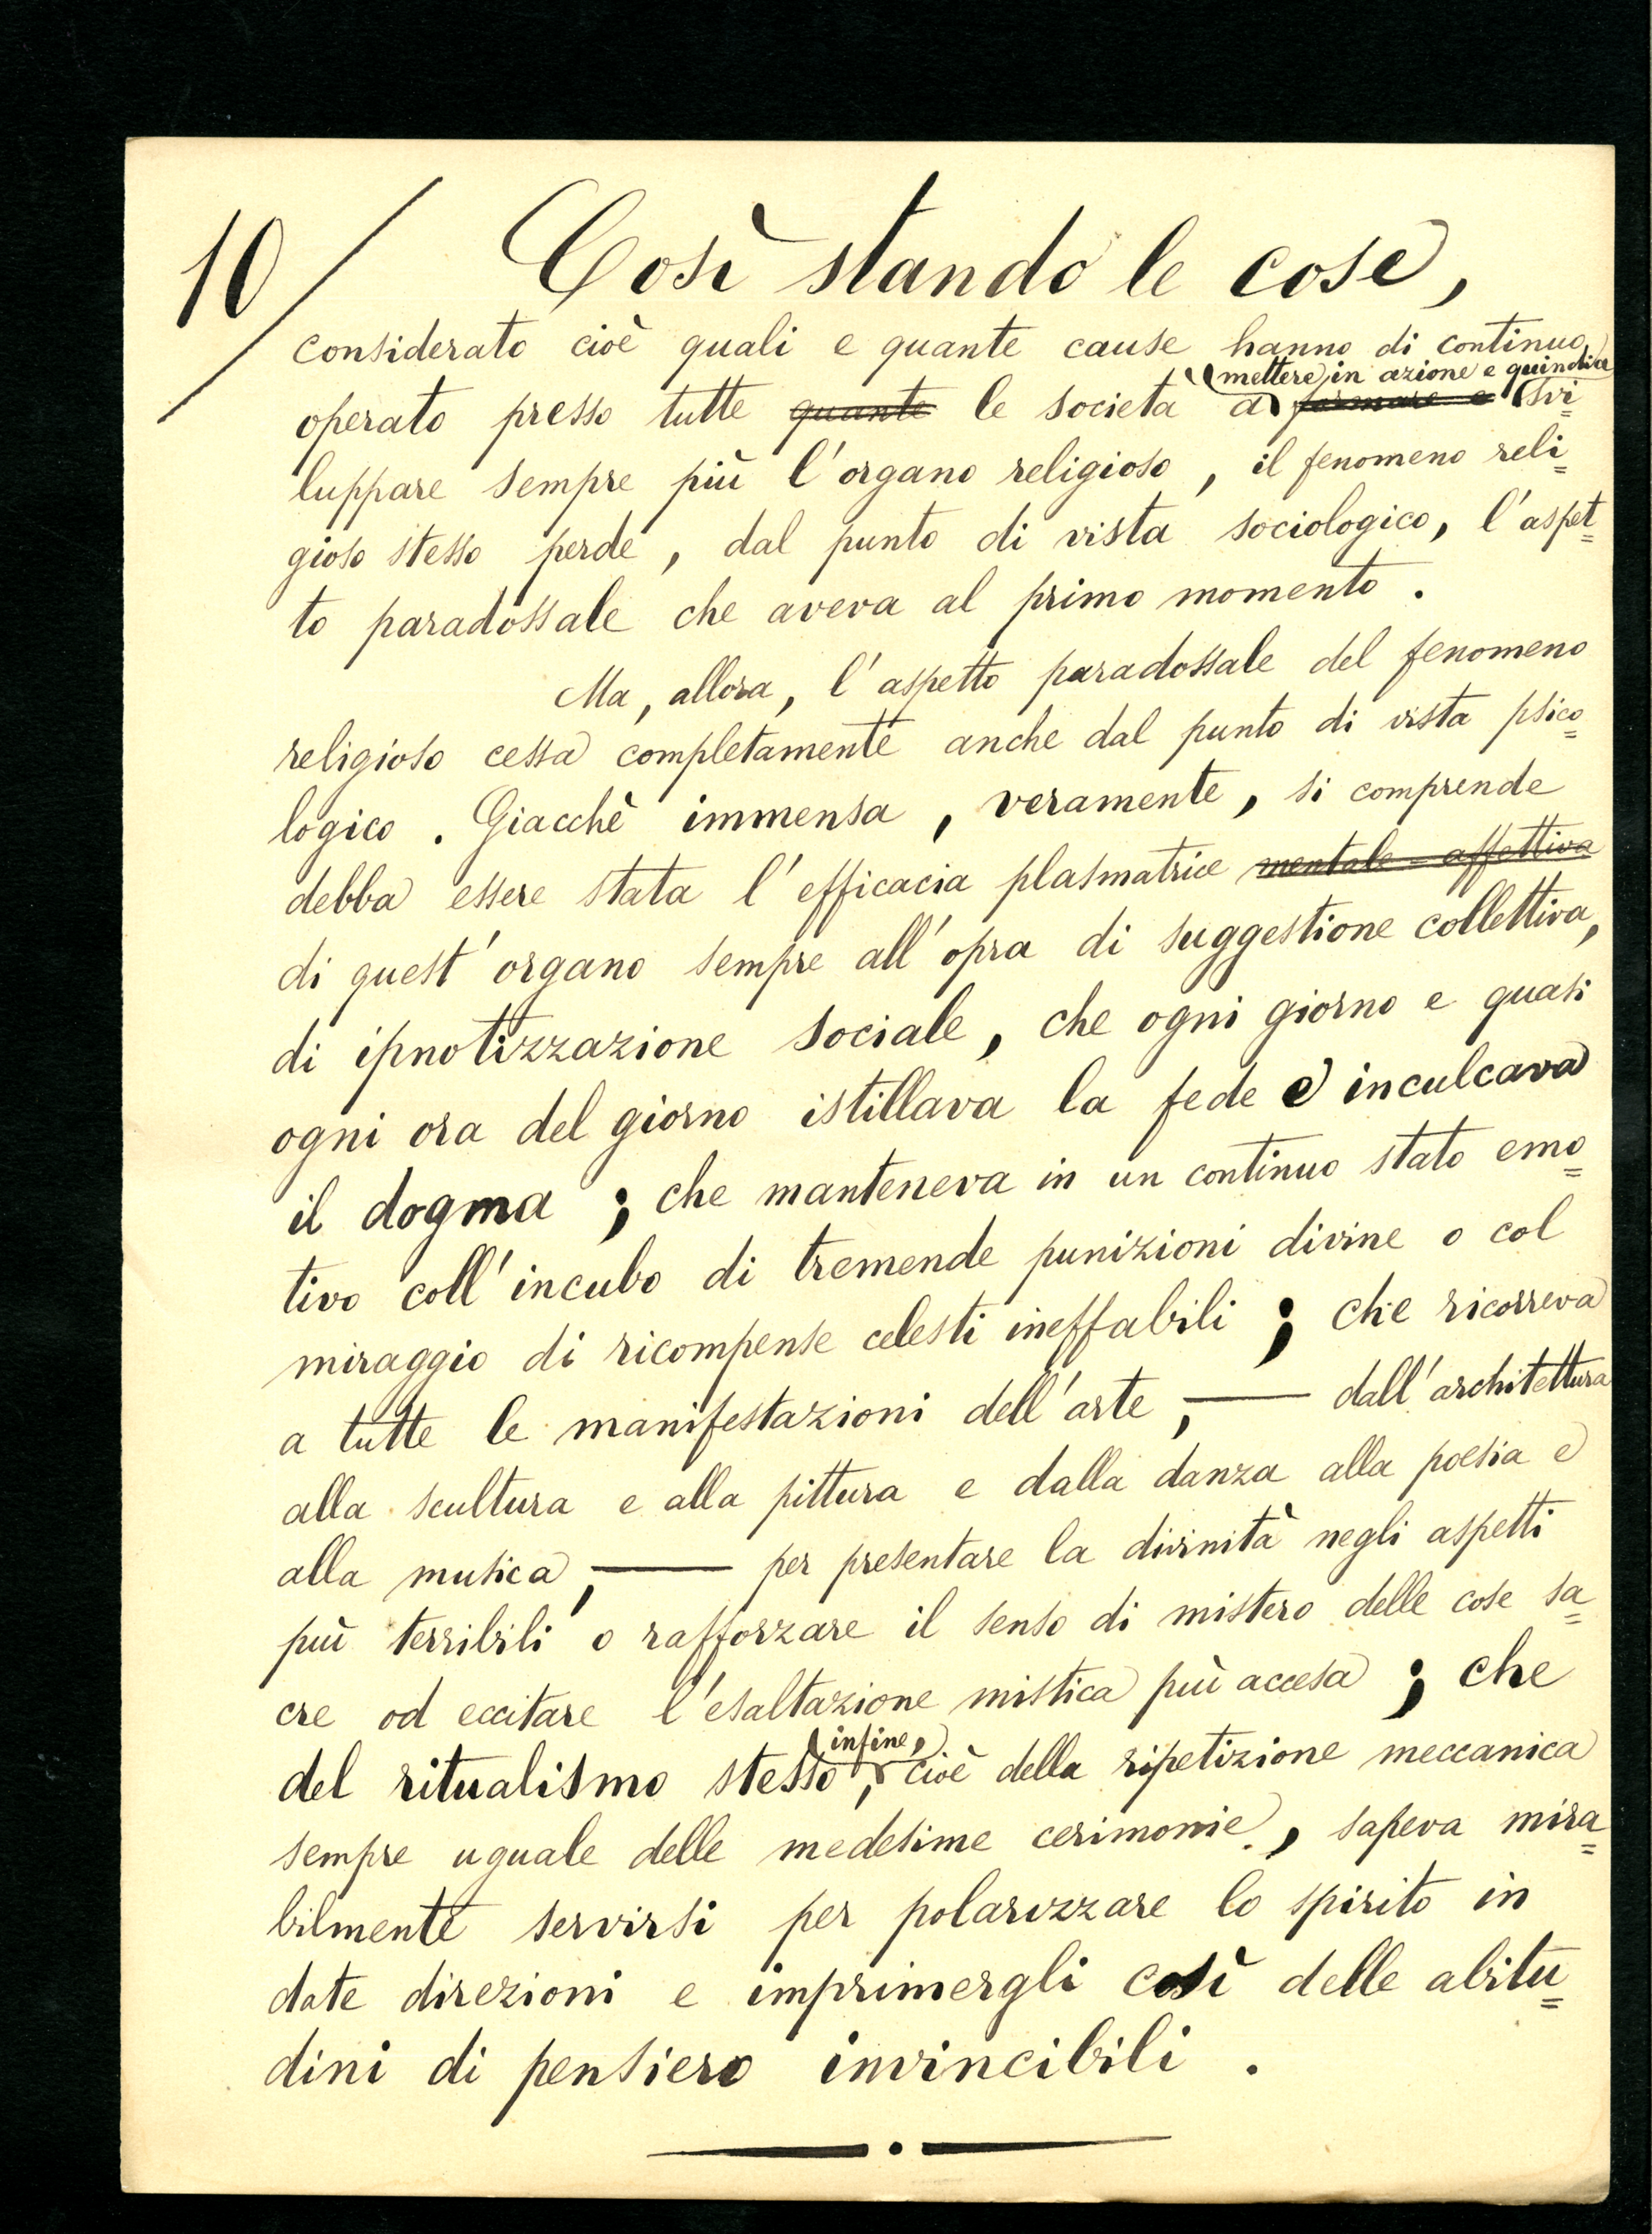 10/ Così stando le cose,
considerato cioè quali e quante cause hanno di continuo
mettere in azione e quindi a
operato presso tutte quante le società a formare e svi=
luppare sempre più l'organo religioso, il fenomeno reli=
gioso stesso perde, dal punto di vista sociologico, l'aspet=
to paradossale che aveva al primo momento.
Ma, allora, l'aspetto paradossale del fenomeno
religioso cessa completamente anche dal punto di vista psico=
logico. Giacchè immensa, veramente, si comprende
debba essere stata l'efficacia plasmatrice mentale-affettiva
di quest'organo sempre all'opra di suggestione collettiva,
di ipnotizzazione sociale, che ogni giorno e quasi
ogni ora del giorno istillava la fede e inculcava
il dogma; che manteneva in un continuo stato emo=
tivo coll'incubo di tremende punizioni divine o col
miraggio di ricompense celesti ineffabili; che ricorreva
a tutte le manifestazioni dell'arte, — dall'architettura
alla scultura e alla pittura e dalla danza alla poesia e
alla musica, — per presentare la divinità negli aspetti
più terribili o rafforzare il senso di mistero delle cose sa=
cre od eccitare l'esaltazione mistica più accesa; che
infine,
del ritualismo stesso, cioè della ripetizione meccanica
sempre uguale delle medesime cerimonie, sapeva mira=
bilmente servirsi per polarizzare lo spirito in
date direzioni e imprimergli così delle abitu=
dini di pensiero invincibili.